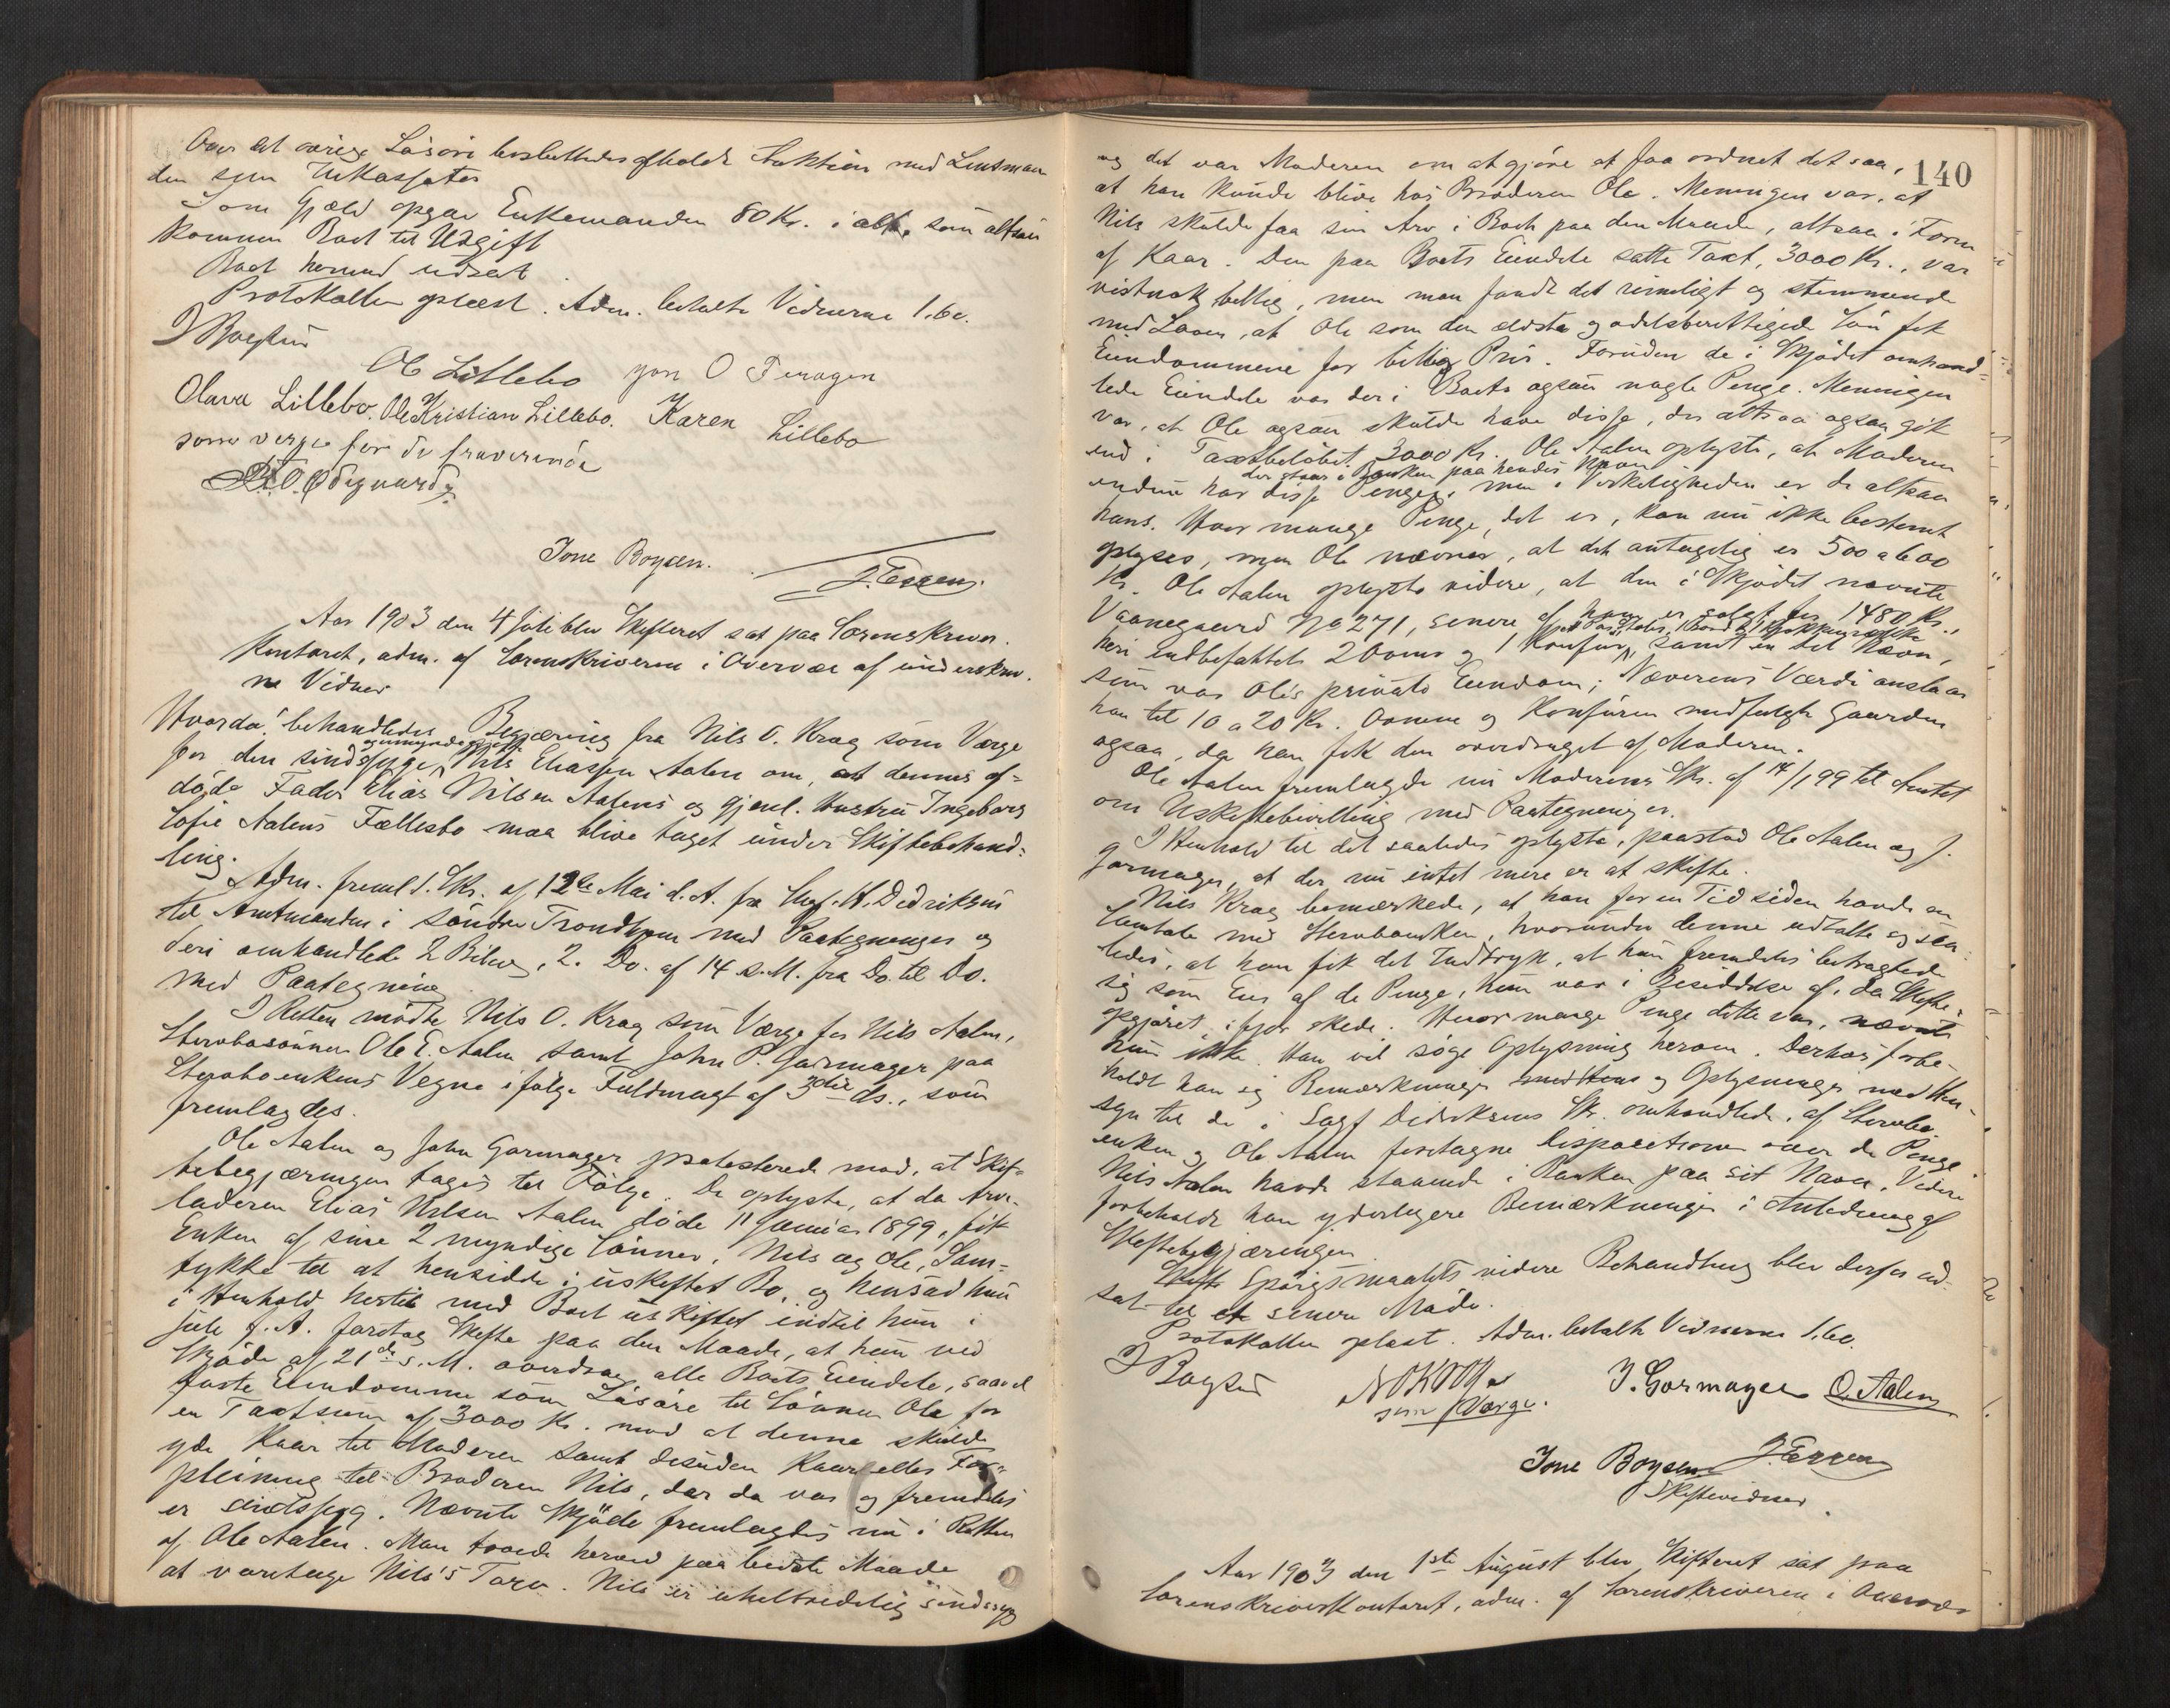 Over det øvrige Løsøre besluttedes afholdt Auktion med Lensman
den som Inkassator
Som Gjæld opgav Enkemanden 80 Kr. i alt, som altsaa
kommer Boet til Udgift
Boet hermed udsat.
Protokollen oplæst. Adm. betalte Vidnerne 1.60.
J Bogstad
O E Lillebo  O Teragen
Olava Lillebo. Ole Kristian Lillebo. Karen Lillebo
som verge for de fraværende
O. Ødegaard
Tone Boysen. J. Essen.
Aar 1903 den 4 Juli blev Skifteret sat paa Sorenskriver-
kontoret, adm. af Sorenskriveren i Overvær af underskrev-
ne Vidner
Hvorda! behandledes Begjæring fra Nils O. Krag som Værge
for den sindssyge og umyndiggjorte Nils Eliassen Aalen om, at dennes af-
døde Fader Elias Nilsen Aalens og gjenl. Hustru Ingeborg
Sofie Aalens Fællesbo maa blive taget under Skiftebehand-
ling.
Adm. freml. 1. Skr. af 12te Mai d. A. fra Sagf. H. Didriksen
til Amtmanden i Søndre Trondhjem med Paategninger og
deri omhandlede 2 Bilag, 2. Do. af 14 s. M. fra Do. til Do.
med Paategning
I Retten mødte Nils O. Krag som Værge for Nils Aalen,
Stervbosønnen Ole E. Aalen samt John P. Garmager paa
Stervboenkens Vegne ifølge Fuldmagt af 3die ds., som
fremlagdes.
Ole Aalen og John Gormager protesterede mod, at Skif-
tebegjæringen tages til Følge. De oplyste, at da Arve-
laderen Elias Nilsen Aalen døde 11 Januar 1899, fik
Enken af sine 2 myndige Sønner, Nils og Ole, Sam-
tykke til at hensidde i uskiftet Bo, og hensad hun
i Henhold hertil med Boet uskiftet indtil hun i
Juli f. A. foretog Skifte paa den Maade, at hun ved
Skjøde af 21de s. M. overdrog alle Boets Eiendele, saavel
faste Eiendomme som Løsøre til Sønnen Ole for
en Taxtsum af 3000 Kr. mod at denne skulde
yde Kaar til Moderen samt desuden Kaar eller For-
pleining til Broderen Nils, der da var og fremdeles
er sindssyg. Nævnte Skjøde fremlagdes nu i Retten
af Ole Aalen. Man troede herved paa bedste Maade
at varetage Nils's Tarv. Nils er uhelbredelig sindssyg
140
og det var Moderen om at gjøre at faa ordnet det saa,
at han kunde blive hos Broderen Ole. Meningen var, at
Nils skulde faa sin Arv i Boet paa den Maade, altsaa i Form
af Kaar. Den paa Boets Eiendele satte Taxt, 3000 Kr., var
vistnok billig, men man fandt det rimeligt og stemmende
med Loven, at Ole som den ældste odelsberettigede Søn fik
Eiendommene for billig Pris. Foruden de i Skjødet omhand-
lede Eiendele var der i Boets ogsaa nogle Penge. Meningen
var, at Ole ogsaa skulde have disse, der altsaa ogsaa gik
ind i Taxtbeløbet 3000 Kr. Ole Aalen oplyste, at Moderen
der staar i Banken paa hendes Navn
endnu har disse Penge, men i Virkeligheden er de altsaa
hans. Hvor mange Penge, det er, kan nu ikke bestemt
oplyses, men Ole nævner, at det antagelig er 500 a 600
Kr. Ole Aalen oplyste videre, at den i Skjødet nævnte
Vaanegaard No 271, senere af ham er solgt for 1480 Kr.,
heri indbefattet 2 Ovne og 1 Komfur, samt en Del Næver,
som var Oles private Eiendom; Næverens Værdi anslaar
han til 10 a 20 Kr. Ovnene og Komfuren medfulgte Gaarden
ogsaa, da han fik den overdraget af Moderen.
Ole Aalen fremlagde nu Moderens Skr. af 14/1 99 til Amtet
om Uskiftebevilling med Paategninger.
I Henhold til det saaledes oplyste, paastod Ole Aalen og J.
Gormager, at der nu intet mere er at skifte.
Nils Krag bemærkede, at han for en Tid siden havde en
Samtale med Stervboenken, hvorunder denne udtalte sig saa-
ledes, at han fik det Indtryk, at hun fremdeles betragtede
sig som Eier af de Penge, hun var i Besiddelse af, da Skifte-
opgjøret ifjor skede. Hvor mange Penge dette var, nævnte
hun ikke. Han vil søge Oplysning herom. Derhos forbe-
holdt han sig Bemærkninger og Oplysninger med Hen-
syn til de i Sagf. Didriksens Skr. omhandlede, af Stervbo-
enken og Ole Aalen foretagne Dispositioner over de Penge
Nils Aalen havde staaende i Banken paa sit Navn. Videre
forbeholdt han yderligere Bemærkninger i Anledning af
Skiftebegjæringen.
Spørgsmaalets videre Behandling blev derfor ud-
sat til et senere Møde.
Protokollen oplæst. Adm. betalte Vidnerne 1.60.
J Bogstad N O KROG
som Værge. J. Gormager O. Aalen
Tone Boysen J. Essen
Skiftevidner.
Aar 1903 den 1ste August blev Skifteret sat paa
Sorenskriverkontoret, adm. af Sorenskriveren i Overvær